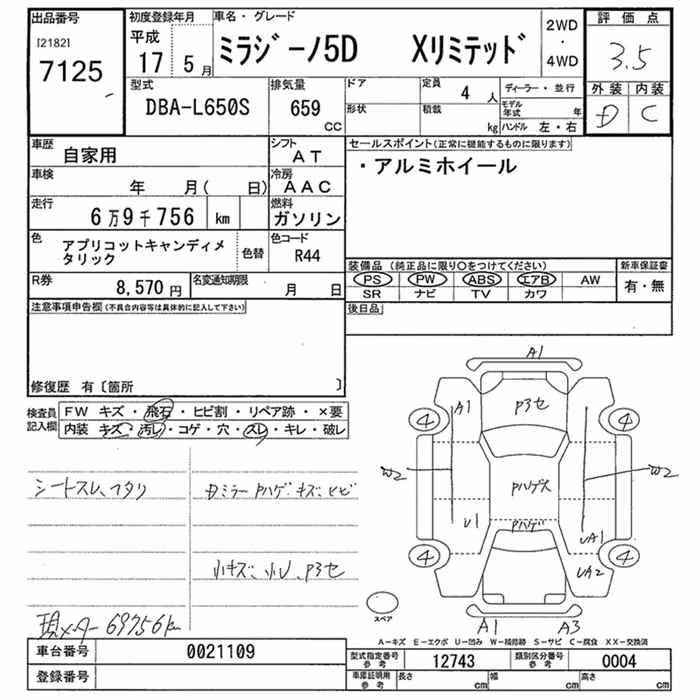 出品番号 初度登録年月 車名・グレード 2WD・4WD 評価点
[2182]
7125
平成
17 5月
ミラジーノ5D Xリミテッド
3.5
外装 内装
D C
型式 排気量 ドア 定員 4 人 ディーラー・並行
DBA-L650S 659 CC
形状 積載 kg モデル年式 年
ハンドル 左・右
車歴 自家用 シフト AT
セールスポイント(正常に機能するものに限ります)
・アルミホイール
車検 年 月( 日) 冷房 AAC
走行 6万9千756 km 燃料 ガソリン
色 アプリコットキャンディメタリック 色替 色コード R44
装備品(純正品に限り〇をつけてください) 新車保証書
PS PW ABS エアB AW 有・無
SR ナビ TV カワ
R券 8,570円 名変通知期限 月 日
後日品
注意事項申告欄(不具合内容等は具体的に記入して下さい)
修復歴 有〔箇所 〕
検査員記入欄
FW キズ・飛石・ヒビ割・リペア跡・×要
内装 キズ・汚レ・コゲ・穴・スレ・キレ・破レ
シートスレ、フタリ
Dミラー Pハゲキズヒビ
小キズ、小U、P3セ
現メーター 69756km
A1
P3セ
A1
4 4
W2 W2
Pハゲス
Pハゲ
U1 UA1
UA2
4 4
A1 A3
スペア
A-キズ E-エクボ U-凹み W-補修跡 S-サビ C-腐食 XX-交換済
車台番号 0021109
型式指定番号 参考 12743 類別区分番号 参考 0004
登録番号
車庫証明用 参考 長さ cm 幅 cm 高さ cm